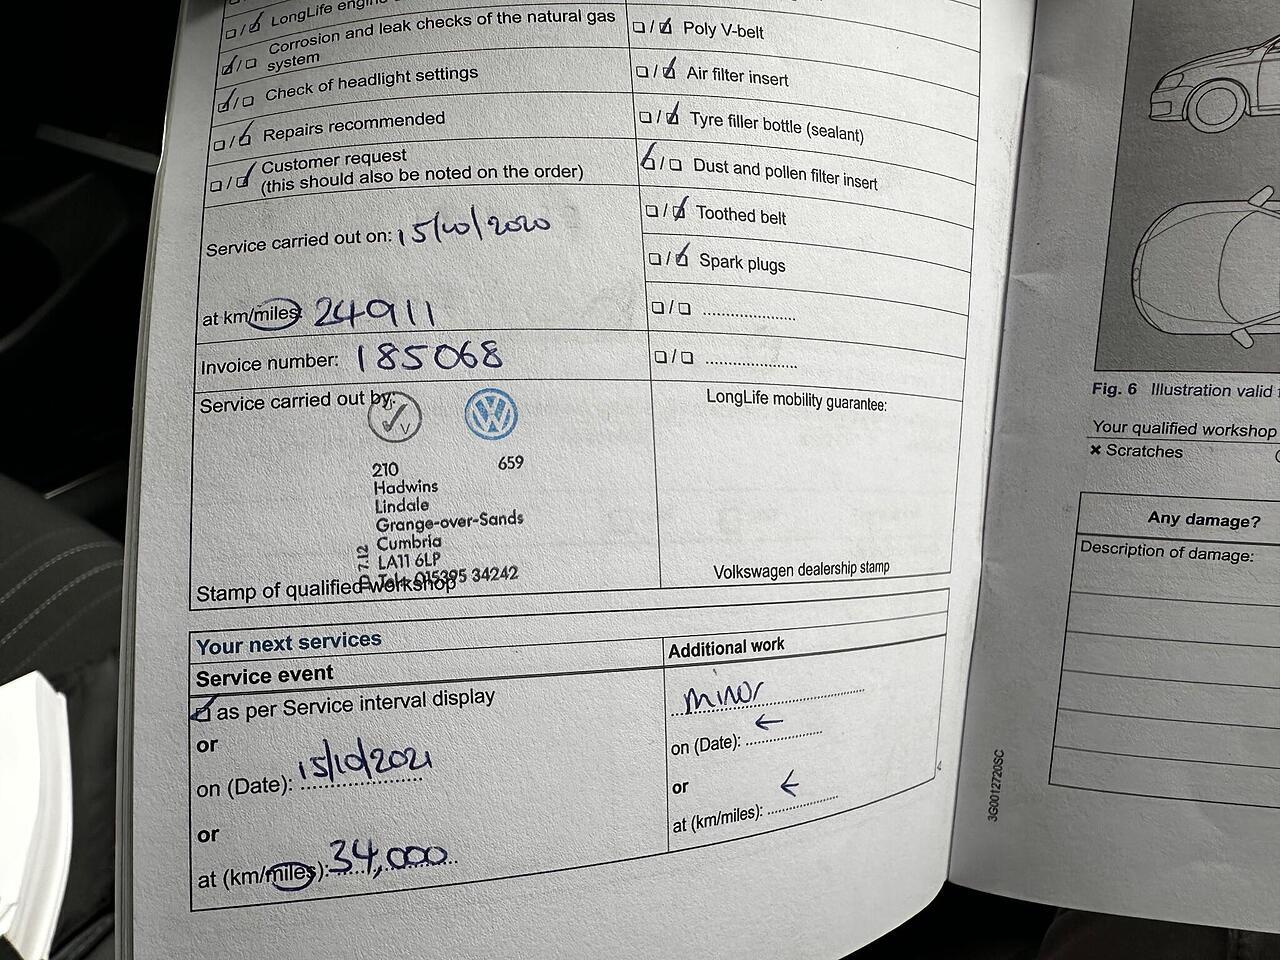 ☐/☑ LongLife engine
☑/☐ Corrosion and leak checks of the natural gas
system
☑/☐ Check of headlight settings
☐/☑ Repairs recommended
☐/☑ Customer request
(this should also be noted on the order)
Service carried out on: 15/10/2020
at km/miles: 24911
Invoice number: 185068
Service carried out by:
V
VW
210 659
Hadwins
Lindale
Grange-over-Sands
Cumbria
LA11 6LP
Tel: 015395 34242
7.12
Stamp of qualified workshop
☐/☑ Poly V-belt
☐/☑ Air filter insert
☐/☑ Tyre filler bottle (sealant)
☑/☐ Dust and pollen filter insert
☐/☑ Toothed belt
☐/☑ Spark plugs
☐/☐ ....................
☐/☐ ....................
LongLife mobility guarantee:
Volkswagen dealership stamp
Your next services
Service event
☑ as per Service interval display
or
on (Date): 15/10/2021
or
at (km/miles): 34,000
Additional work
minor
on (Date): ←
or
at (km/miles): ←
3G0012720SC
Fig. 6 Illustration valid
Your qualified workshop
× Scratches
Any damage?
Description of damage: